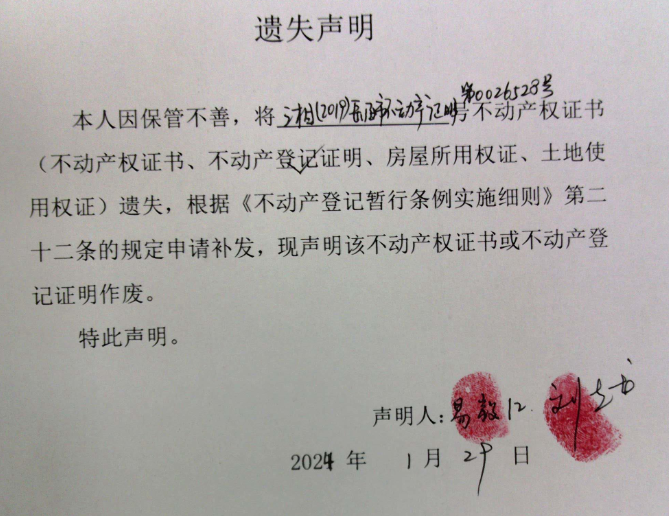 遗失声明
本人因保管不善，将 湘(2019)长沙市不动产证明第0026528号号不动产权证书
（不动产权证书、不动产登记证明、房屋所用权证、土地使
用权证）遗失，根据《不动产登记暂行条例实施细则》第二
十二条的规定申请补发，现声明该不动产权证书或不动产登
记证明作废。
特此声明。
声明人：易
2024 年 1 月 29 日